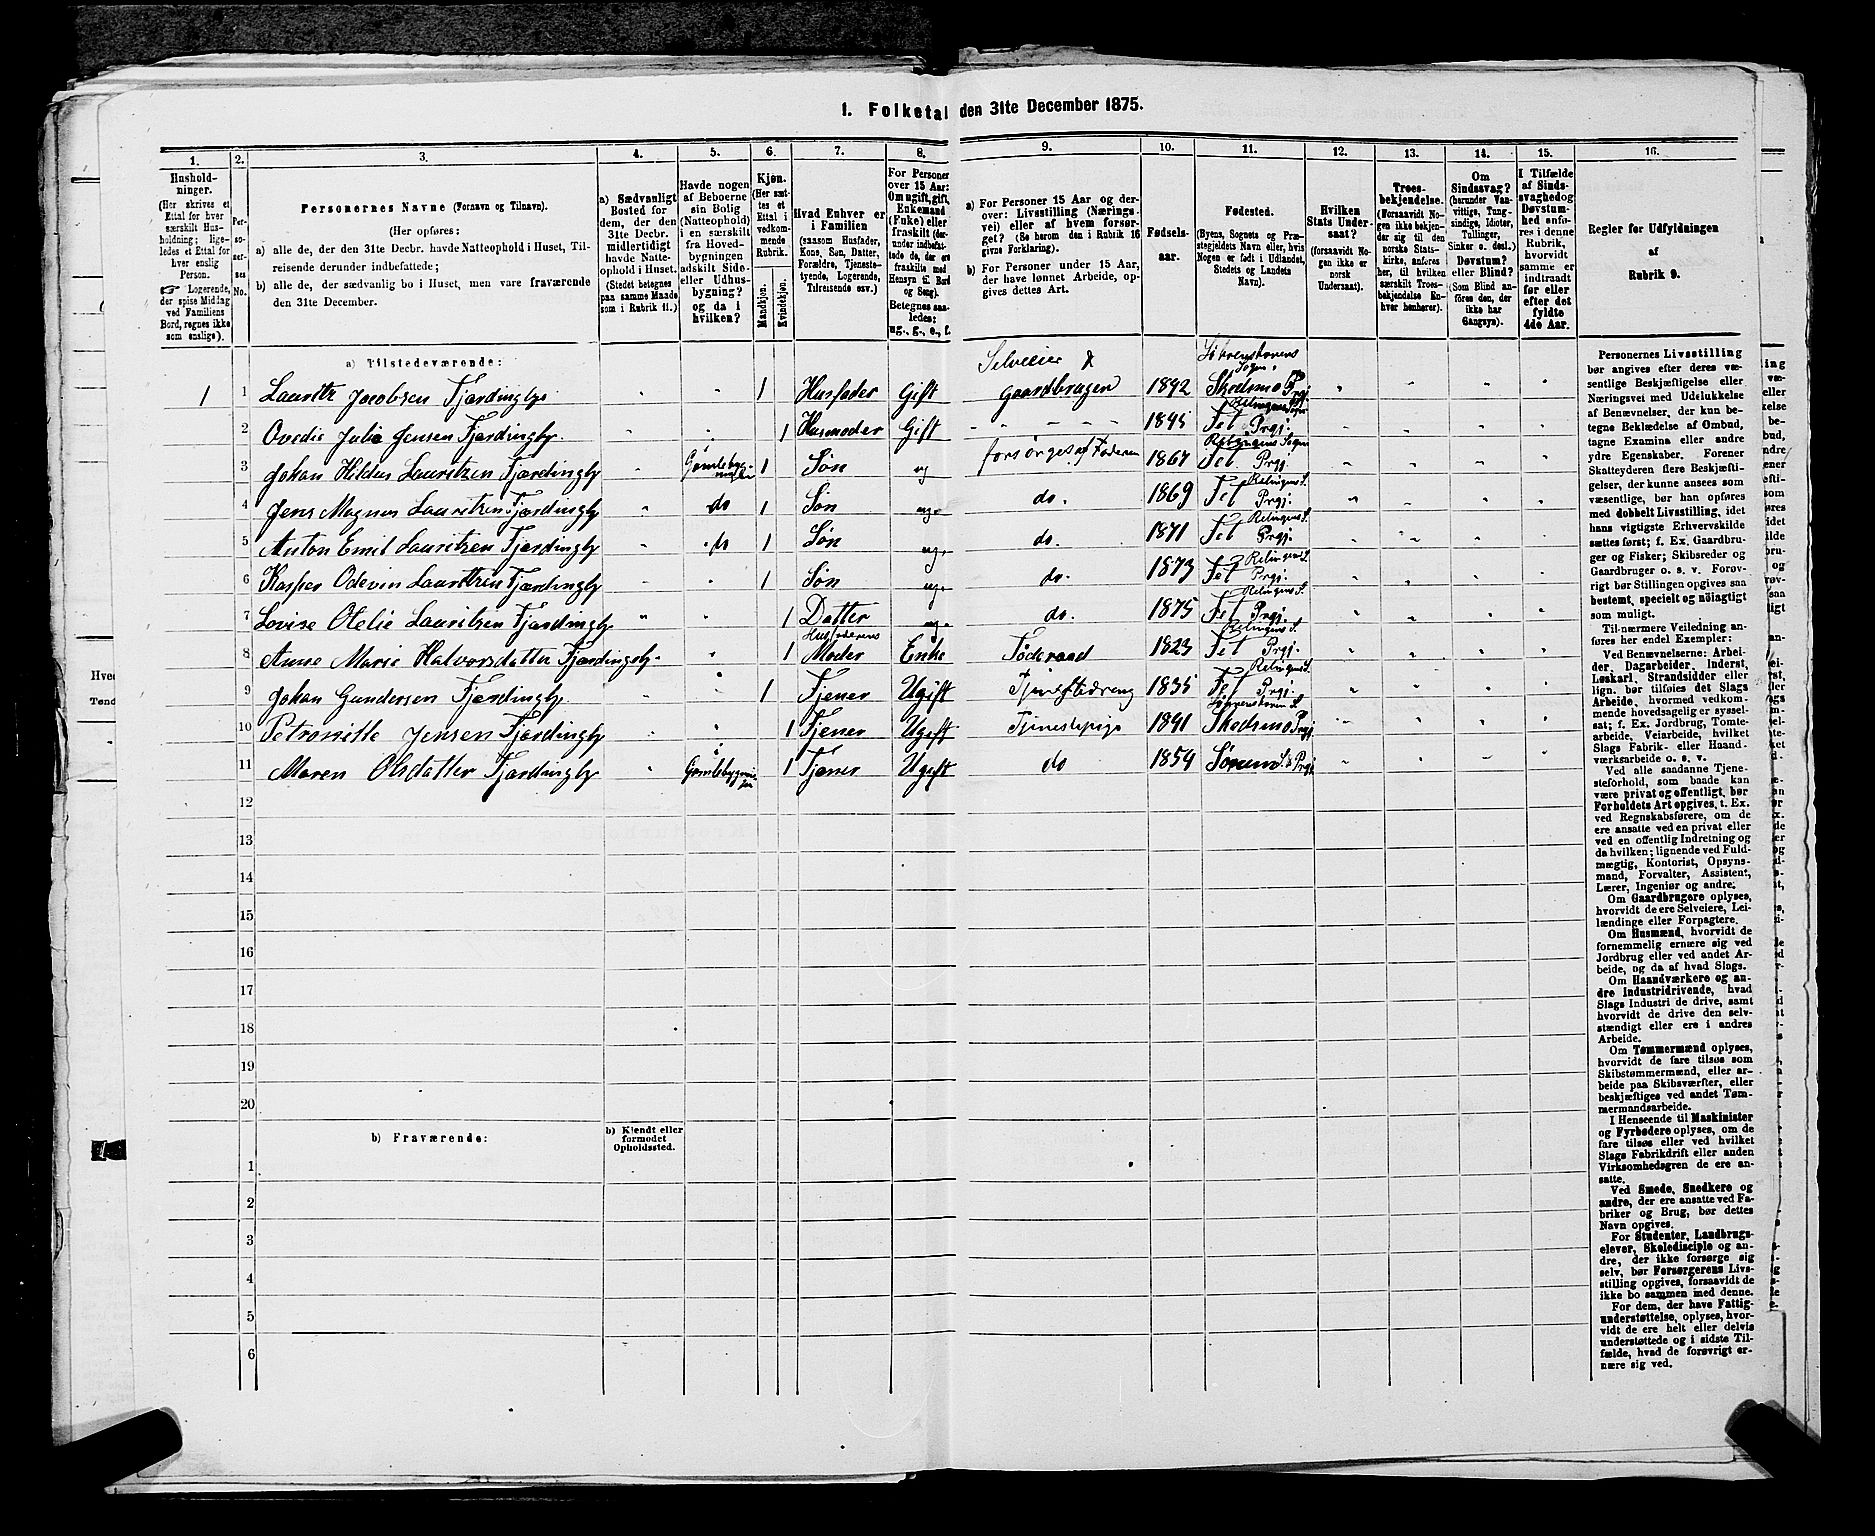 1. Folketal den 31te December 1875.
1. 2. 3. 4. 5. 6. 7. 8. 9. 10. 11. 12. 13. 14. 15. 16.
Hushold-
ninger.
(Her skrives et
Ettal for hver
særskilt Hus-
holdning; lige-
ledes et Ettal for
hver enslig
Person.
☞ Logerende,
der spise Middag
ved Familiens
Bord, regnes ikke
som enslige).
Per-
so-
ner-
nes
No.
Personernes Navne (Fornavn og Tilnavn).
(Her opføres:
a) alle de, der den 31te Decbr. havde Natteophold i Huset, Til-
reisende derunder indbefattede;
b) alle de, der sædvanlig bo i Huset, men vare fraværende
den 31te December.
a) Sædvanligt
Bosted for
dem, der den
31te Decbr.
midlertidigt
havde Natte-
ophold i Huset.
(Stedet betegnes
paa samme Maade
som i Rubrik 11.)
Havde nogen
af Beboerne
sin Bolig
(Natteophold)
i en særskilt
fra Hoved-
bygningen
adskilt Side-
eller Udhus-
bygning?
og da i
hvilken?
Kjøn.
(Her sæt-
tes et
Ettal i
vedkom-
mende
Rubrik.
Mandkjøn.
Kvindekjøn.
Hvad Enhver er
i Familien
(saasom Husfader,
Kone, Søn, Datter,
Forældre, Tjeneste-
tyende, Logerende,
Tilreisende osv.)
For Personer
over 15 Aar:
Om ugift, gift,
Enkemand
(Enke) eller
fraskilt (der-
under indbefat-
tede de, der ere
fraskilte med
Hensyn til Bord
og Seng).
Betegnes saa-
ledes:
ug., g., e., f.
a) For Personer 15 Aar og der-
over: Livsstilling (Nærings-
vei) eller af hvem forsør-
get? (Se herom den i Rubrik 16
givne Forklaring).
b) For Personer under 15 Aar,
der have lønnet Arbeide, op-
gives dettes Art.
Fødsels-
aar.
Fødested.
(Byens, Sognets og Præ-
stegjeldets Navn eller, hvis
Nogen er født i Udlandet,
Stedets og Landets
Navn).
Hvilken
Stats Under-
saat?
(forsaavidt No-
gen ikke er
norsk
Undersaat).
Troes-
bekjendelse.
(Forsaavidt No-
gen ikke bekjen-
der sig til den
norske Stats-
kirke, anføres
her, til hvilken
særskilt Troes-
bekjendelse En-
hver henhører).
Om
Sindssvag?
(herunder Van-
vittige, Tung-
sindige, Idioter,
Tullinger,
Sinker o. desl.)
Døvstum?
eller Blind?
(Som Blind an-
føres den, der
ikke har
Gangsyn).
I Tilfælde
af Sinds-
svaghed og
Døvstum-
hed anfø-
res i denne
Rubrik,
hvorvidt
samme er
indtraadt
før eller
efter det
fyldte
4de Aar.
Regler for Udfyldningen
af
Rubrik 9.
a) Tilstedeværende:
1 1 Lauritz Jacobsen Fjærdingby " " 1 Husfader Gift Selveier & Gaardbruger 1842 Løbrenskovens Sogn, Skedsmo Prgj. " " " "
2 Ovedie Julie Jensen Fjærdingby. " " 1 Husmoder Gift " " " " 1845 Relingens Sogn Fet Prgj. " " " "
3 Johan Hildus Lauritzen Fjærdingby " Gamlebyg-ningen 1 Søn ug forsørges af Faderen 1867 Relingens Sogn Fet Prgj. " " " "
4 Jens Magnus Lauritzen Fjærdingby " do 1 Søn ug. do. 1869 Relingens S. Fet Prgj. " " " "
5 Anton Emil Lauritzen Fjærdingby " do 1 Søn ug. do. 1871 Relingens S. Fet Prgj. " " " "
6 Kasper Odevin Lauritzen Fjærdingby " " 1 Søn ug. do. 1873 Relingens S. Fet Prgj. " " " "
7 Lovise Otelie Lauritzen Fjærdingby " " 1 Datter ug. do. 1875 Relingens S. Fet Prgj. " " " "
8 Anne Marie Halvorsdatter Fjærdingby. " 1 Husfaderens Moder Enke Føderaad 1823 Relingens S. Fet Prgj. " " " "
9 Johan Gundersen Fjærdingby. " " 1 Tjener Ugift Tjenestedreng 1835 Relingens S. Fet Prgj. " " " "
10 Petronille Jensen Fjærdingby " " 1 Tjener Ugift Tjenestepige 1841 Skedsmo Prgj. " " " "
11 Maren Olsdatter Fjærdingby " Gamlebygnin-gen 1 Tjener Ugift do 1854 Sørum S. & Prgj. " " " "
12
13
14
15
16
17
18
19
20
b) Fraværende:
b) Kjendt eller
formodet
Opholdssted.
1
2
3
4
5
6
Personernes Livsstilling
bør angives efter deres væ-
sentlige Beskjæftigelse eller
Næringsvei med Udelukkelse
af Benævnelser, der kun be-
tegne Beklædelse af Ombud,
tagne Examina eller andre
ydre Egenskaber. Forener
Skatteyderen flere Beskjæfti-
gelser, der kunne ansees som
væsentlige, bør han opføres
med dobbelt Livsstilling, idet
hans vigtigste Erhvervskilde
sættes først; f. Ex. Gaardbru-
ger og Fisker; Skibsreder og
Gaardbruger o. s. v. Forøv-
rigt bør Stillingen opgives saa
bestemt, specielt og nöiagtigt
som muligt.
Til nærmere Veiledning an-
føres her endel Exempler:
Ved Benævnelserne: Arbei-
der, Dagarbeider, Inderst,
Løskarl, Strandsidder eller
lign. bør tilføies det Slags
Arbeide, hvormed vedkom-
mende hovedsagelig er syssel-
sat; f. Ex. Jordbrug, Tomte-
arbeide, Veiarbeide, hvilket
Slags Fabrik- eller Haand-
værksarbeide o. s. v.
Ved alle saadanne Tjene-
steforhold, som baade kan
være privat og offentligt, bør
Forholdets Art opgives, t. Ex.
ved Regnskabsførere, om de
ere ansatte ved en privat eller
ved en offentlig Indretning og
da hvilken; lignende ved Fuld-
mægtig, Kontorist, Opsyns-
mand, Forvalter, Assistent,
Lærer, Ingeniør og andre.
Om Gaardbrugere oplyses,
hvorvidt de ere Selveiere, Lei-
lændinge eller Forpagtere.
Om Husmænd, hvorvidt de
fornemmelig ernære sig ved
Jordbrug eller ved andet Ar-
beide, og da af hvad Slags.
Om Haandværkere og an-
dre Industridrivende, hvad
Slags Industri de drive, samt
hvorvidt de drive den selv-
stændigt eller ere i andres
Arbeide.
Om Tømmermænd oplyses,
hvorvidt de fare tilsøs som
Skibstømmermænd, eller ar-
beide paa Skibsværfter, eller
beskjæftiges ved andet Tøm-
mermandsarbeide.
I Henseende til Maskinister
og Fyrbødere oplyses, om de
fare tilsøs eller ved hvilket
Slags Fabrikdrift eller anden
Virksomhedsgren de ere an-
satte.
Ved Smede, Snedkere og
andre, der ere ansatte ved Fa-
briker og Brug, bør dettes
Navn opgives.
For Studenter, Landbrugs-
elever, Skoledisciple og an-
dre, der ikke forsørge sig
selv, bør Forsørgerens Livs-
stilling opgives, forsaavidt de
ikke bo sammen med denne.
For dem, der have Fattig-
understøttelse, oplyses, hvor-
vidt de ere helt eller delvis
understøttede og i sidste Til-
fælde, hvad de forøvrigt er-
nære sig ved.